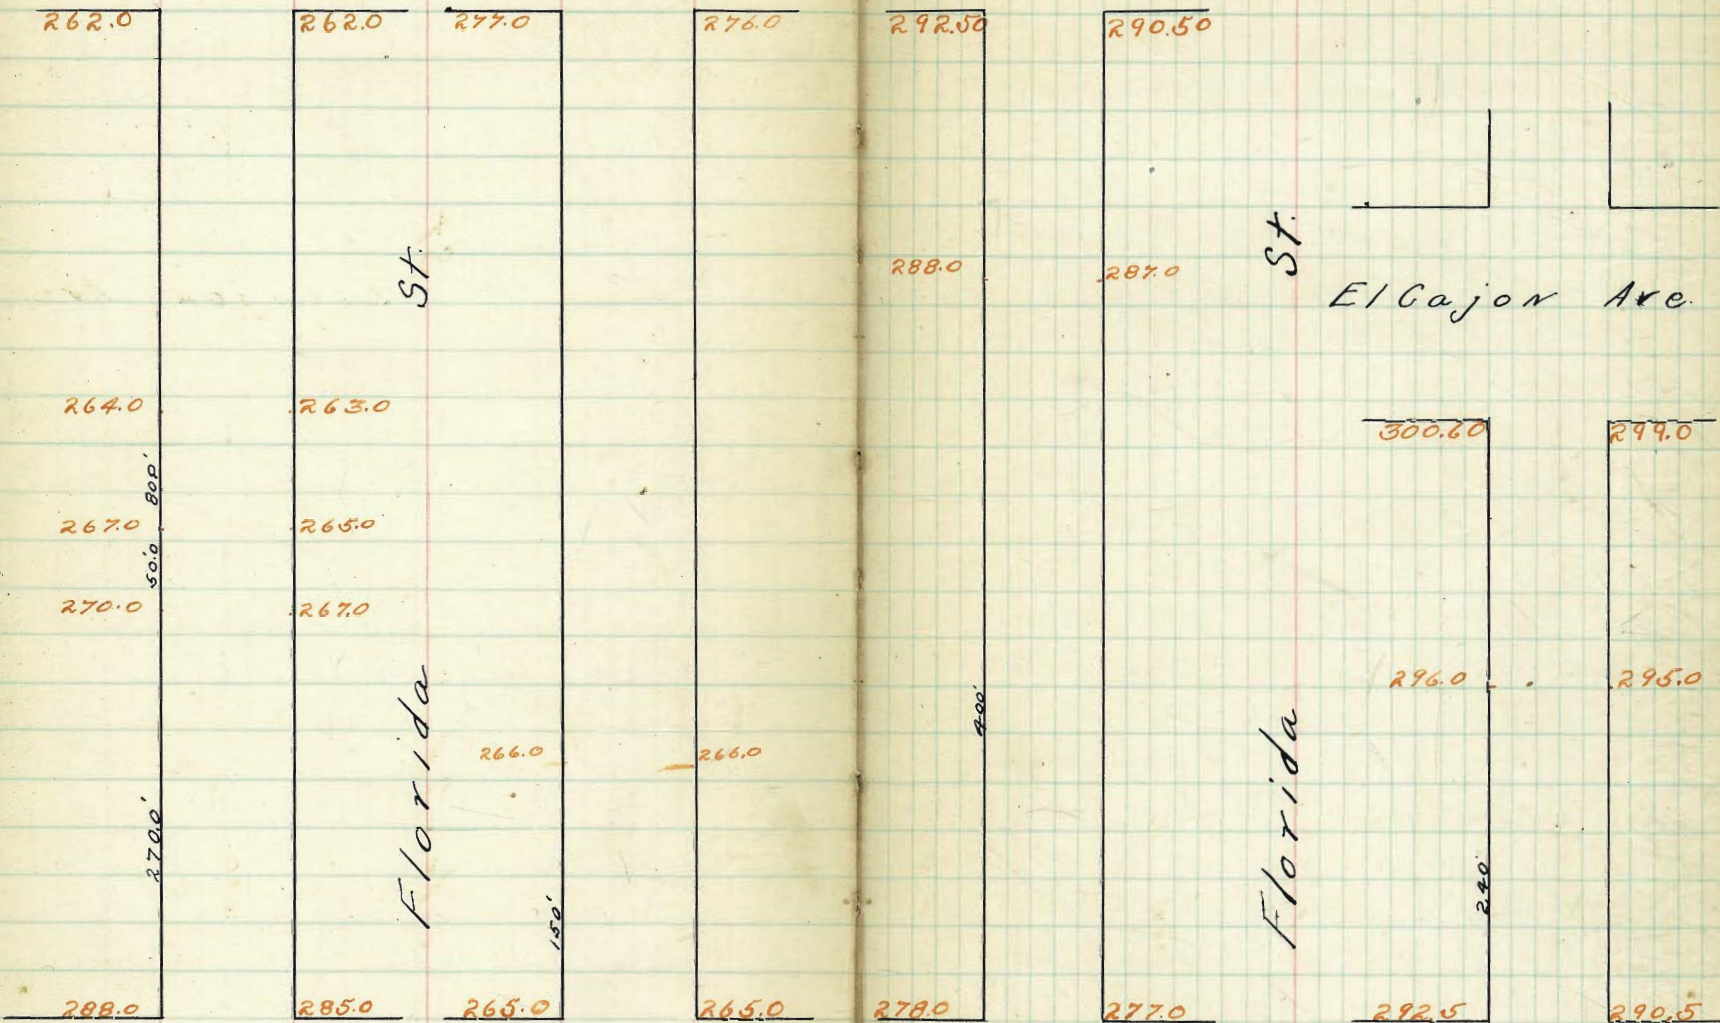 262.0 262.0 277.0 276.0 292.50 290.50
St. St.
288.0 287.0
El Cajon Ave.
264.0 263.0
300.60 299.0
267.0 265.0
50.0'
270.0 267.0
Florida Florida
296.0 295.0
400'
266.0 266.0
270.0'
240'
150'
288.0 285.0 265.0 265.0 278.0 277.0 292.5 290.5